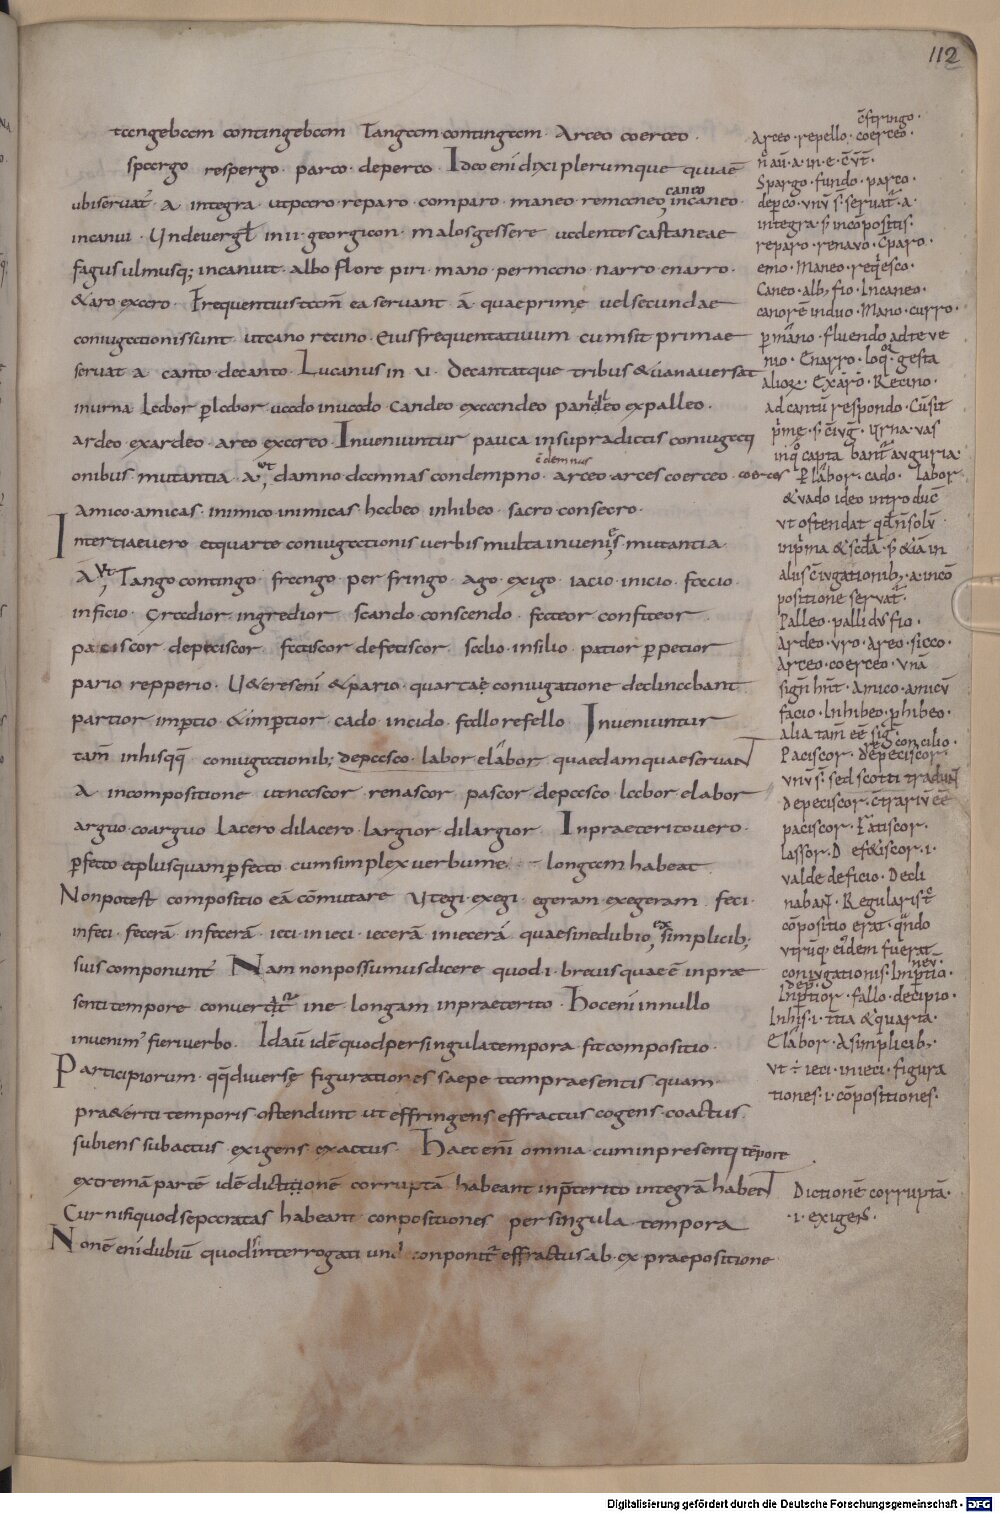 112
tangebam contingebam Tangam contingam · Arceo coerceo ·
spargo respergo · parco · deperco · Ideo eni dixi plerumque quia ē
ubi servat᷑ a integra · ut paro reparo · comparo · maneo remaneo, caneo incaneo ·
incanui · Unde vergł in ii · georgicon · malos gessere valentes castaneae
fagus ulmusq; incanuit · albo flore piri · mano · permano · narro enarro ·
& aro exaro · Frequentius tam̄ ea servant ā · quae primę vel secundae
coniugationis sunt · ut cano recino · Eius frequentativum cum sit primae
servat a · canto · decanto · Lucanus in vi · Decantatque tribus & vana versat
in urna Labor plabor · vado invado Candeo excandeo expalleo ·
ardeo exardeo · areo exareo · Inveniuntur pauca in supradictis coniugati
onibus · mutantia · a, ut damno damnas condempno · arceo arces coerceo · coerces
amico · amicas · inimico inimicas habeo inhibeo · sacro consecro ·
In tertiae vero et quartę coniugationis verbis multa invenis mutantia
Ā, ut Tango contingo · frango · per fringo · ago · exigo · iacio · inicio · facio ·
inficio · Gradior · ingredior · scando conscendo · fateor confiteor
paciscor depeciscor · fatiscor defetiscor · salio · insilio · patior p petior
pario repperio · U& eres eni & pario · quartae coniugatione declinabant
partior imptio · & imptior · cado · incido · fallo refello Inveniuntur
tam̄ in hisqq coniugationib; depasco · labor elabor quaedam quae servant
a in compositione ut nascor renascor pascor depasco labor elabor
arguo coarguo Lacero dilacero · largior dilargior · In praeterito vero ·
pfecto et plusquam pfecto cum simplex verbum longam habeat
Non potest compositio eā cōmutare Ut egi · exegi · egeram exegeram · feci ·
infeci · fecerā infecerā · ieci · inieci · iecerā iniecerā quae sine dubio, ex simplicib;
suis componunt᷑ Nam non possumus dicere quod · i · brevis quae ē in prae
senti tempore convertit᷑ in e longam in praeterito · Hoc eni in nullo
invenim᷑ fieri verbo · Id aū idē quod per singula tempora · fit compositio ·
Participiorum · qq diversę figurationes saepe tam praesentis quam ·
pra&eriti temporis ostendunt ut effringens effractus cogens · coactus
subiens subactus · exigens exactus · Haec eni omnia · cum in presenti tēpore
extremā partē idē dictionē corruptā habeant in pterito integrā habent
Cur nisi quod separatas habeant conpositiones per singula tempora
Non ē eni dubiū quod si interrogati conponit᷑ effractus ab · ex praepositione
cſtringo ·
Arceo · repello · coerceo ·
n̄ aū · a · in · e · c̄vt̄ ·
Spargo · fundo · parco ·
integra · s; in cōpositis ·
reparo · renavo · Cparo ·
emo · Maneo · reqesco ·
Caneo · alb; fio · Incaneo ·
canorē induo · Mano · curro ·
pmano · fluendo adte ve
nio · Enarro · loqor · gesta
alioꝝ · Exaro · Recino ·
ad cantū respondo · Cūsit
Urna vas
capta bant᷑ auguria ·
Plabor · cado · labor
& vado ideo introduc̄
ut ostendat
inprima &
aliis c̄iugationib; · a · in cō
positione servat᷑ ·
Palleo · pallidus fio ·
Ardeo · uro · Areo · sicco ·
Arceo · coerceo · unā
sign hn̄t · Amico · amicū
facio · Inhibeo · phibeo ·
alia tam̄ eē sig · concilio ·
Paciscor · depeciscor ·
unū s; sed scotti tradunt
Depeciscor · c̄trariū eē
paciscor · Fatiscor ·
lassor · D ef&iscor · i ·
valde deficio · Decli
nabant · Regularis t̄
cōpositio erat · qndo
utrūq; eidem fuerat
coniugationis · Inptio · neu ·
dep̄ ·
Inptior · fallo · decipio ·
In his · i · t̄tia & quarta ·
Elabor · A simplicib; ·
ut ÷ ieci · inieci · figura
tiones · i · cōpositiones ·
Dictionē corruptā ·
· i · exigens ·
Digitalisierung gefördert durch die Deutsche Forschungsgemeinschaft - DFG